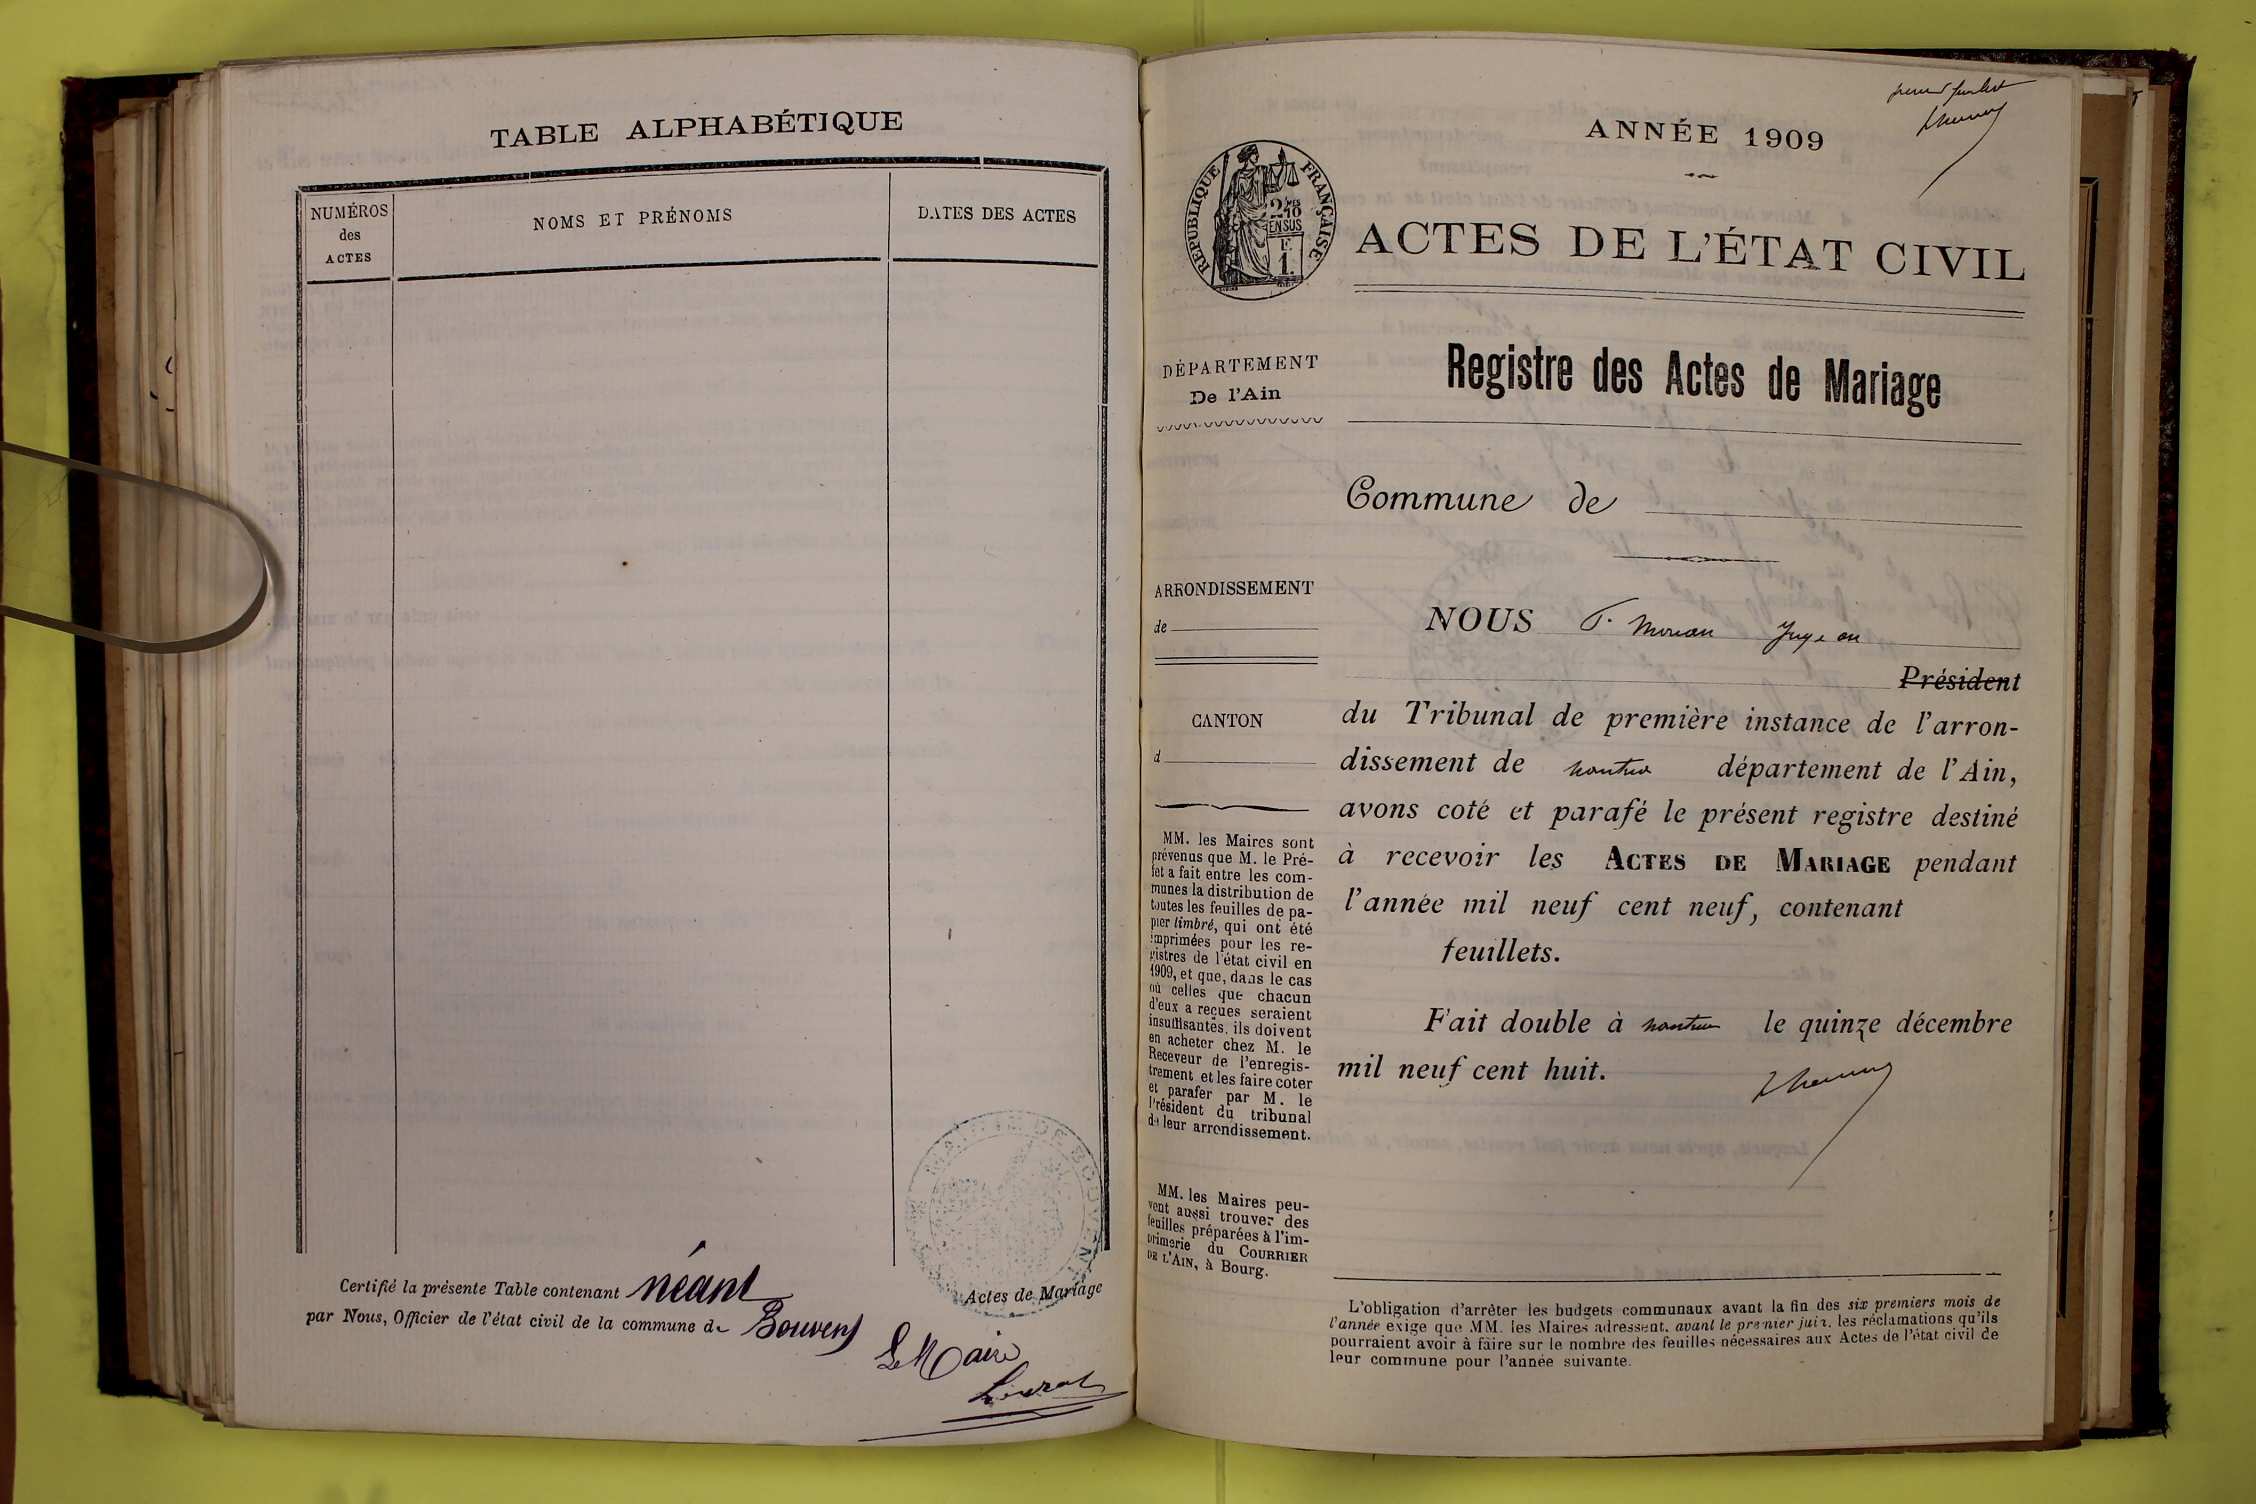 TABLE ALPHABÉTIQUE
NUMÉROS
des
ACTES
NOMS ET PRÉNOMS
DATES DES ACTES
MAIRIE DE BOUVENT
Certifié la présente Table contenant néant Actes de Mariage
par Nous, Officier de l'état civil de la commune de Bouvent
Le Maire
premier feuillet
ANNÉE 1909
RÉPUBLIQUE FRANÇAISE
2/10
EN SUS
F.
1.
ACTES DE L'ÉTAT CIVIL
DÉPARTEMENT
De l'Ain
Registre des Actes de Mariage
Commune de
ARRONDISSEMENT
de
CANTON
d
MM. les Maires sont
prévenus que M. le Pré-
fet a fait entre les com-
munes la distribution de
toutes les feuilles de pa-
pier timbré, qui ont été
imprimées pour les re-
gistres de l'état civil en
1909, et que, dans le cas
où celles que chacun
d'eux a reçues seraient
insuffisantes, ils doivent
en acheter chez M. le
Receveur de l'enregis-
trement et les faire coter
et parafer par M. le
Président du tribunal
de leur arrondissement.
MM. les Maires peu-
vent aussi trouver des
feuilles préparées à l'im-
primerie du COURRIER
DE L'AIN, à Bourg.
NOUS Juge au
Président
du Tribunal de première instance de l'arron-
dissement de nantua département de l'Ain,
avons coté et parafé le présent registre destiné
à recevoir les ACTES DE MARIAGE pendant
l'année mil neuf cent neuf, contenant
feuillets.
Fait double à nantua le quinze décembre
mil neuf cent huit.
L'obligation d'arrêter les budgets communaux avant la fin des six premiers mois de
l'année exige que MM. les Maires adressent, avant le premier juin, les réclamations qu'ils
pourraient avoir à faire sur le nombre des feuilles nécessaires aux Actes de l'état civil de
leur commune pour l'année suivante.